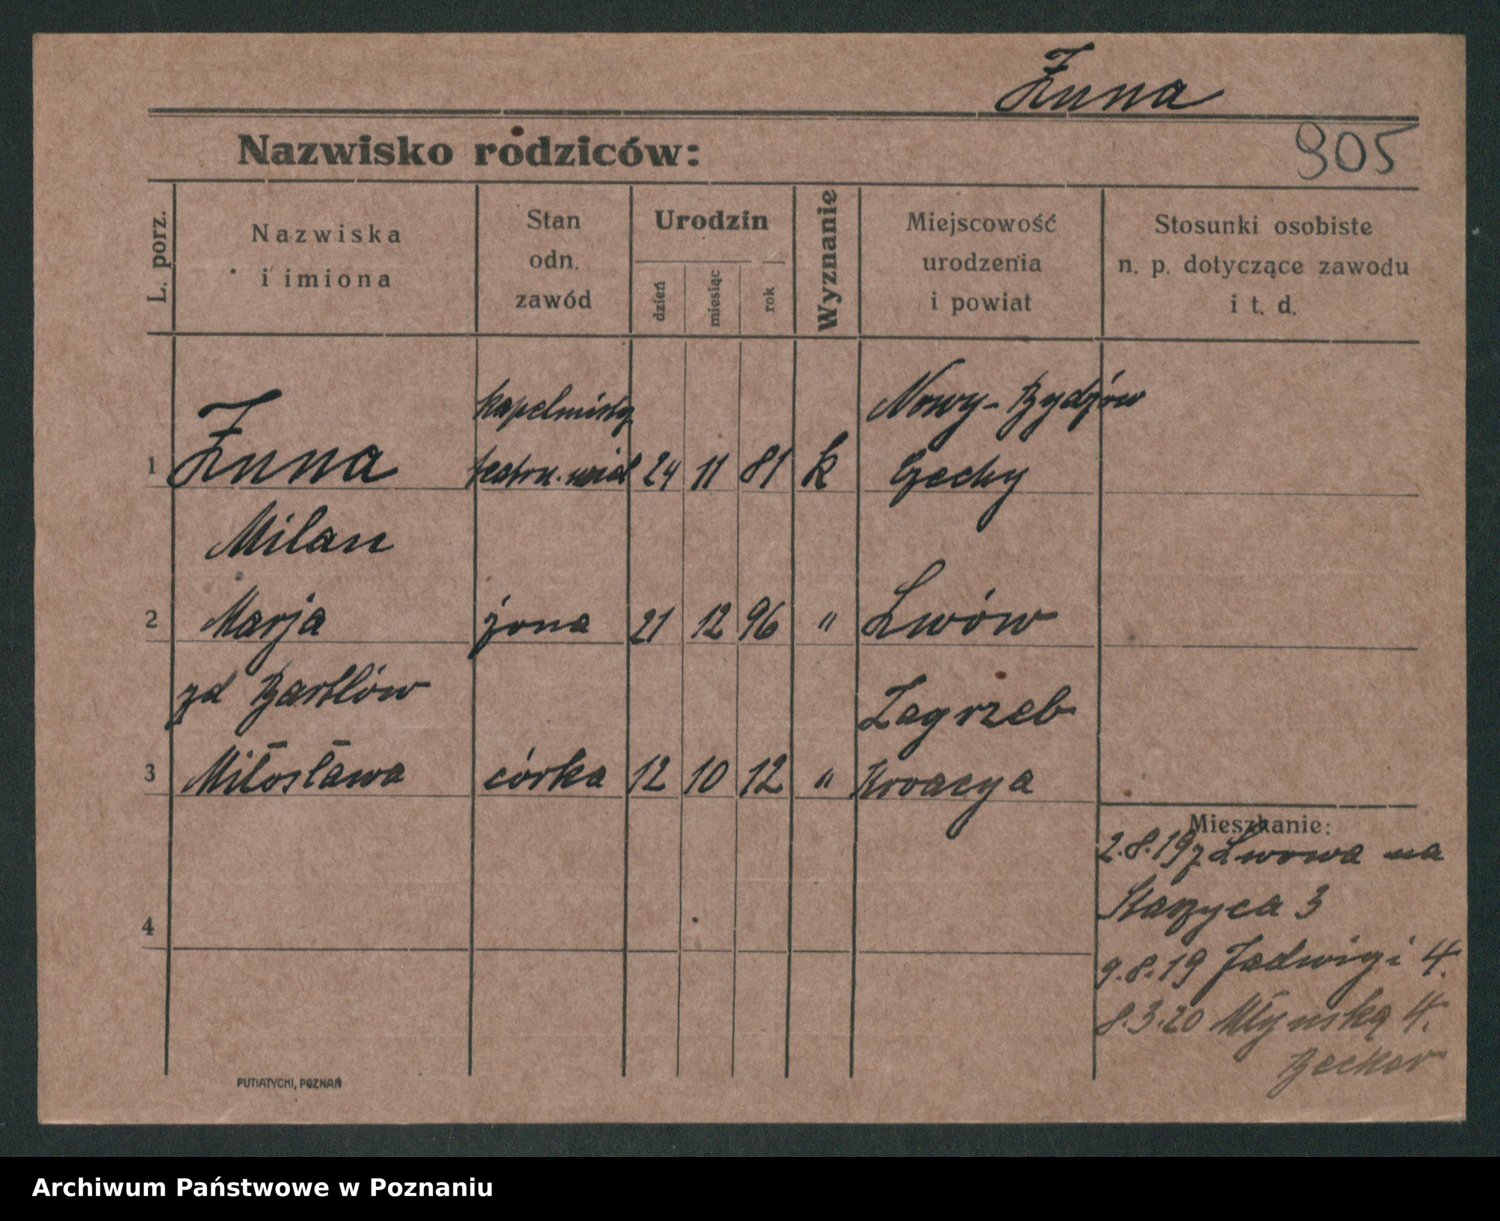 Zuna
Nazwisko rodziców:
905
L. porz.
Nazwiska
i imiona
Stan
odn.
zawód
Urodzin
dzień
miesiąc
rok
Wyznanie
Miejscowość
urodzenia
i powiat
Stosunki osobiste
n. p. dotyczące zawodu
i t. d.
kapelmistrz Nowy-Bydżów
1 Zuna 24 11 81 k Czechy
Milan
2 Marja żona 21 12 96 " Lwów
zd Bartlów Zagrzeb
3 Miłosława córka 12 10 12 " Kroacya
Mieszkanie:
2.8.19 z Lwowa na
Staszyca 3
4
9.8.19 Jadwigi 4.
8.3.20 Młyńską 4.
Becker
PUTIATYCKI, POZNAŃ
Archiwum Państwowe w Poznaniu